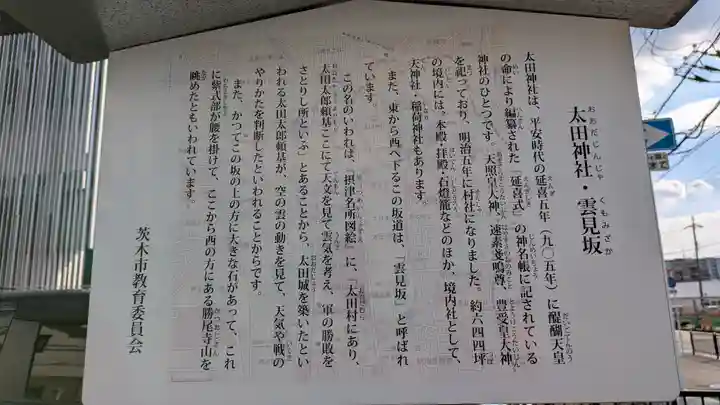 太田神社・雲見坂
太田神社は、平安時代の延喜五年（九〇五年）に醍醐天皇
の命により編纂された「延喜式」の神名帳に記されている
神社のひとつです。天照皇大神、速素盞鳴尊、豊受皇大神
を祀っており、明治五年に村社になりました。約六四四坪
の境内には、本殿・拝殿・石燈籠などのほか、境内社として、
天神社・稲荷神社もあります。
また、東から西へ下るこの坂道は、「雲見坂」と呼ばれ
ています。
この名のいわれは、『摂津名所図絵』に、「太田村にあり、
太田太郎頼基ここにて天文を見て雲気を考え、軍の勝敗を
さとりし所といふ」とあることから、太田城を築いたとい
われる太田太郎頼基が、空の雲の動きを見て、天気や戦の
やりかたを判断したといわれることからです。
また、かつてこの坂の上の方に大きな石があって、これ
に紫式部が腰を掛けて、ここから西の方にある勝尾寺山を
眺めたともいわれています。
茨木市教育委員会